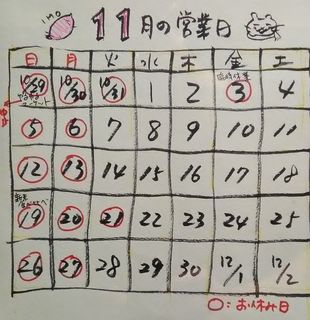 IMO
11月の営業日
日 月 火 水 木 金 土
臨時休業
10/29 10/30 10/31 1 2 3 4
5 6 7 8 9 10 11
12 13 14 15 16 17 18
19 20 21 22 23 24 25
26 27 28 29 30 12/1 12/2
○:お休み日